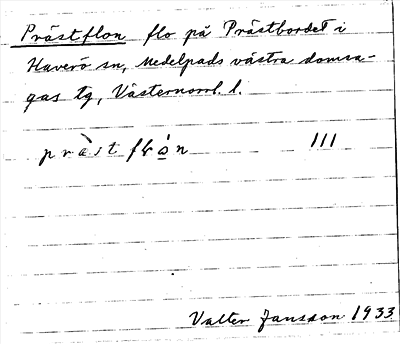 Prästflon flo på Prästbordet i
Haverö sn, Medelpads västra domsa-
gas tg, Västernorrl. l.
prä̀st flo̲̍n III
Valter Jansson 1933